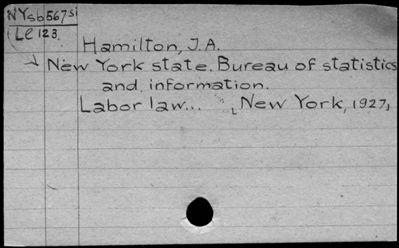 NYsb567si
Le 123
Hamilton, J.A.
New York state. Bureau of statistics
and information.
Labor law... New York, 1927,